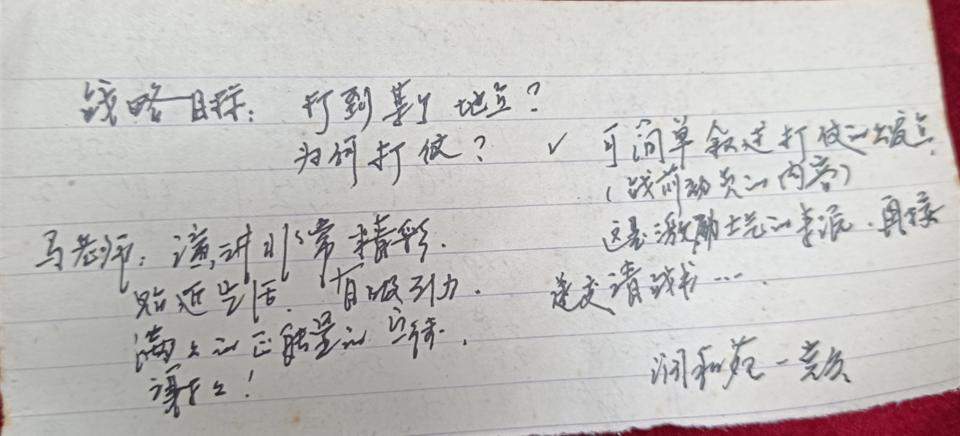 战略目标：打到某个地点？
为何打仗？
✓ 可简单叙述打仗的出发点
（战前动员的内容）
这是激励士兵的来源．再接
递交请战书…
马老师：演讲非常精彩．
贴近生活．有吸引力．
满满的正能量的宣传．
谢谢！
润和苑一党员